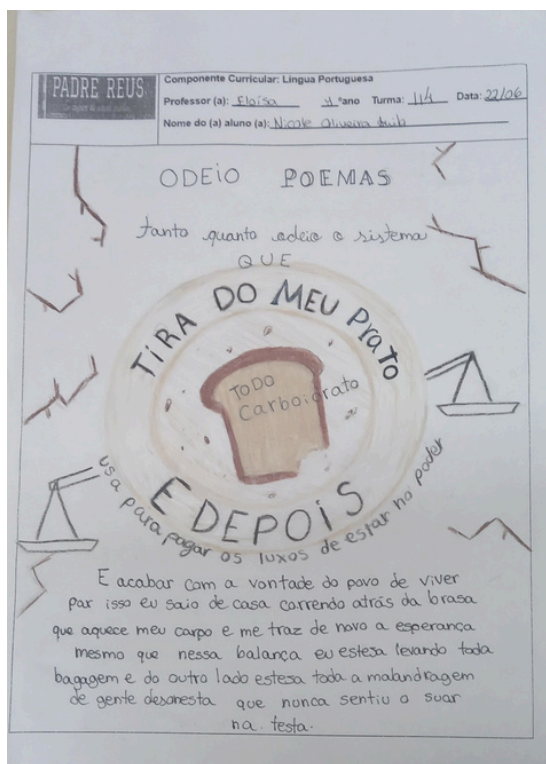 PADRE REUS
Componente Curricular: Língua Portuguesa
Professor (a): Eloísa ºano Turma: 114 Data: 22/06
Nome do (a) aluno (a): Nicole Oliveira
ODEIO POEMAS
tanto quanto odeio o sistema
QUE
TIRA DO MEU PRATO
TODO
Carboidrato
E DEPOIS
usa para pagar os luxos de estar no poder
E acabar com a vontade do povo de viver
Por isso eu saio de casa correndo atrás da brasa
que aquece meu corpo e me traz de novo a esperança
mesmo que nessa balança eu esteja levando toda
bagagem e do outro lado esteja toda a malandragem
de gente desonesta que nunca sentiu o suor
na testa.